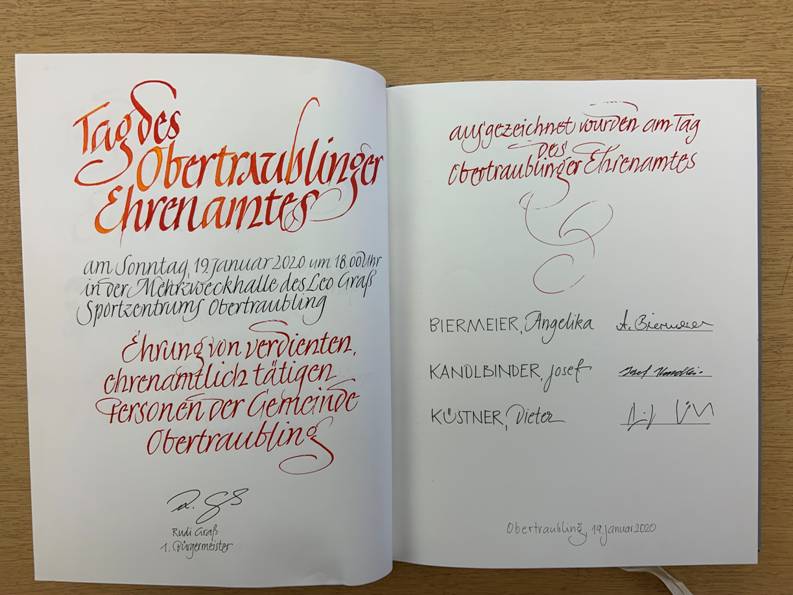 Tag des
Obertraublinger
Ehrenamtes
am Sonntag, 19. Januar 2020, um 18.00 Uhr
in der Mehrzweckhalle des Leo Graß
Sportzentrums Obertraubling
Ehrung von verdienten,
ehrenamtlich tätigen
Personen der Gemeinde
Obertraubling
Rudi Graß
1. Bürgermeister
ausgezeichnet wurden am Tag
des
Obertraublinger Ehrenamtes
BIERMEIER, Angelika A. Biermeier
KANDLBINDER, Josef
KÜSTNER, Dieter
Obertraubling, 19. Januar 2020